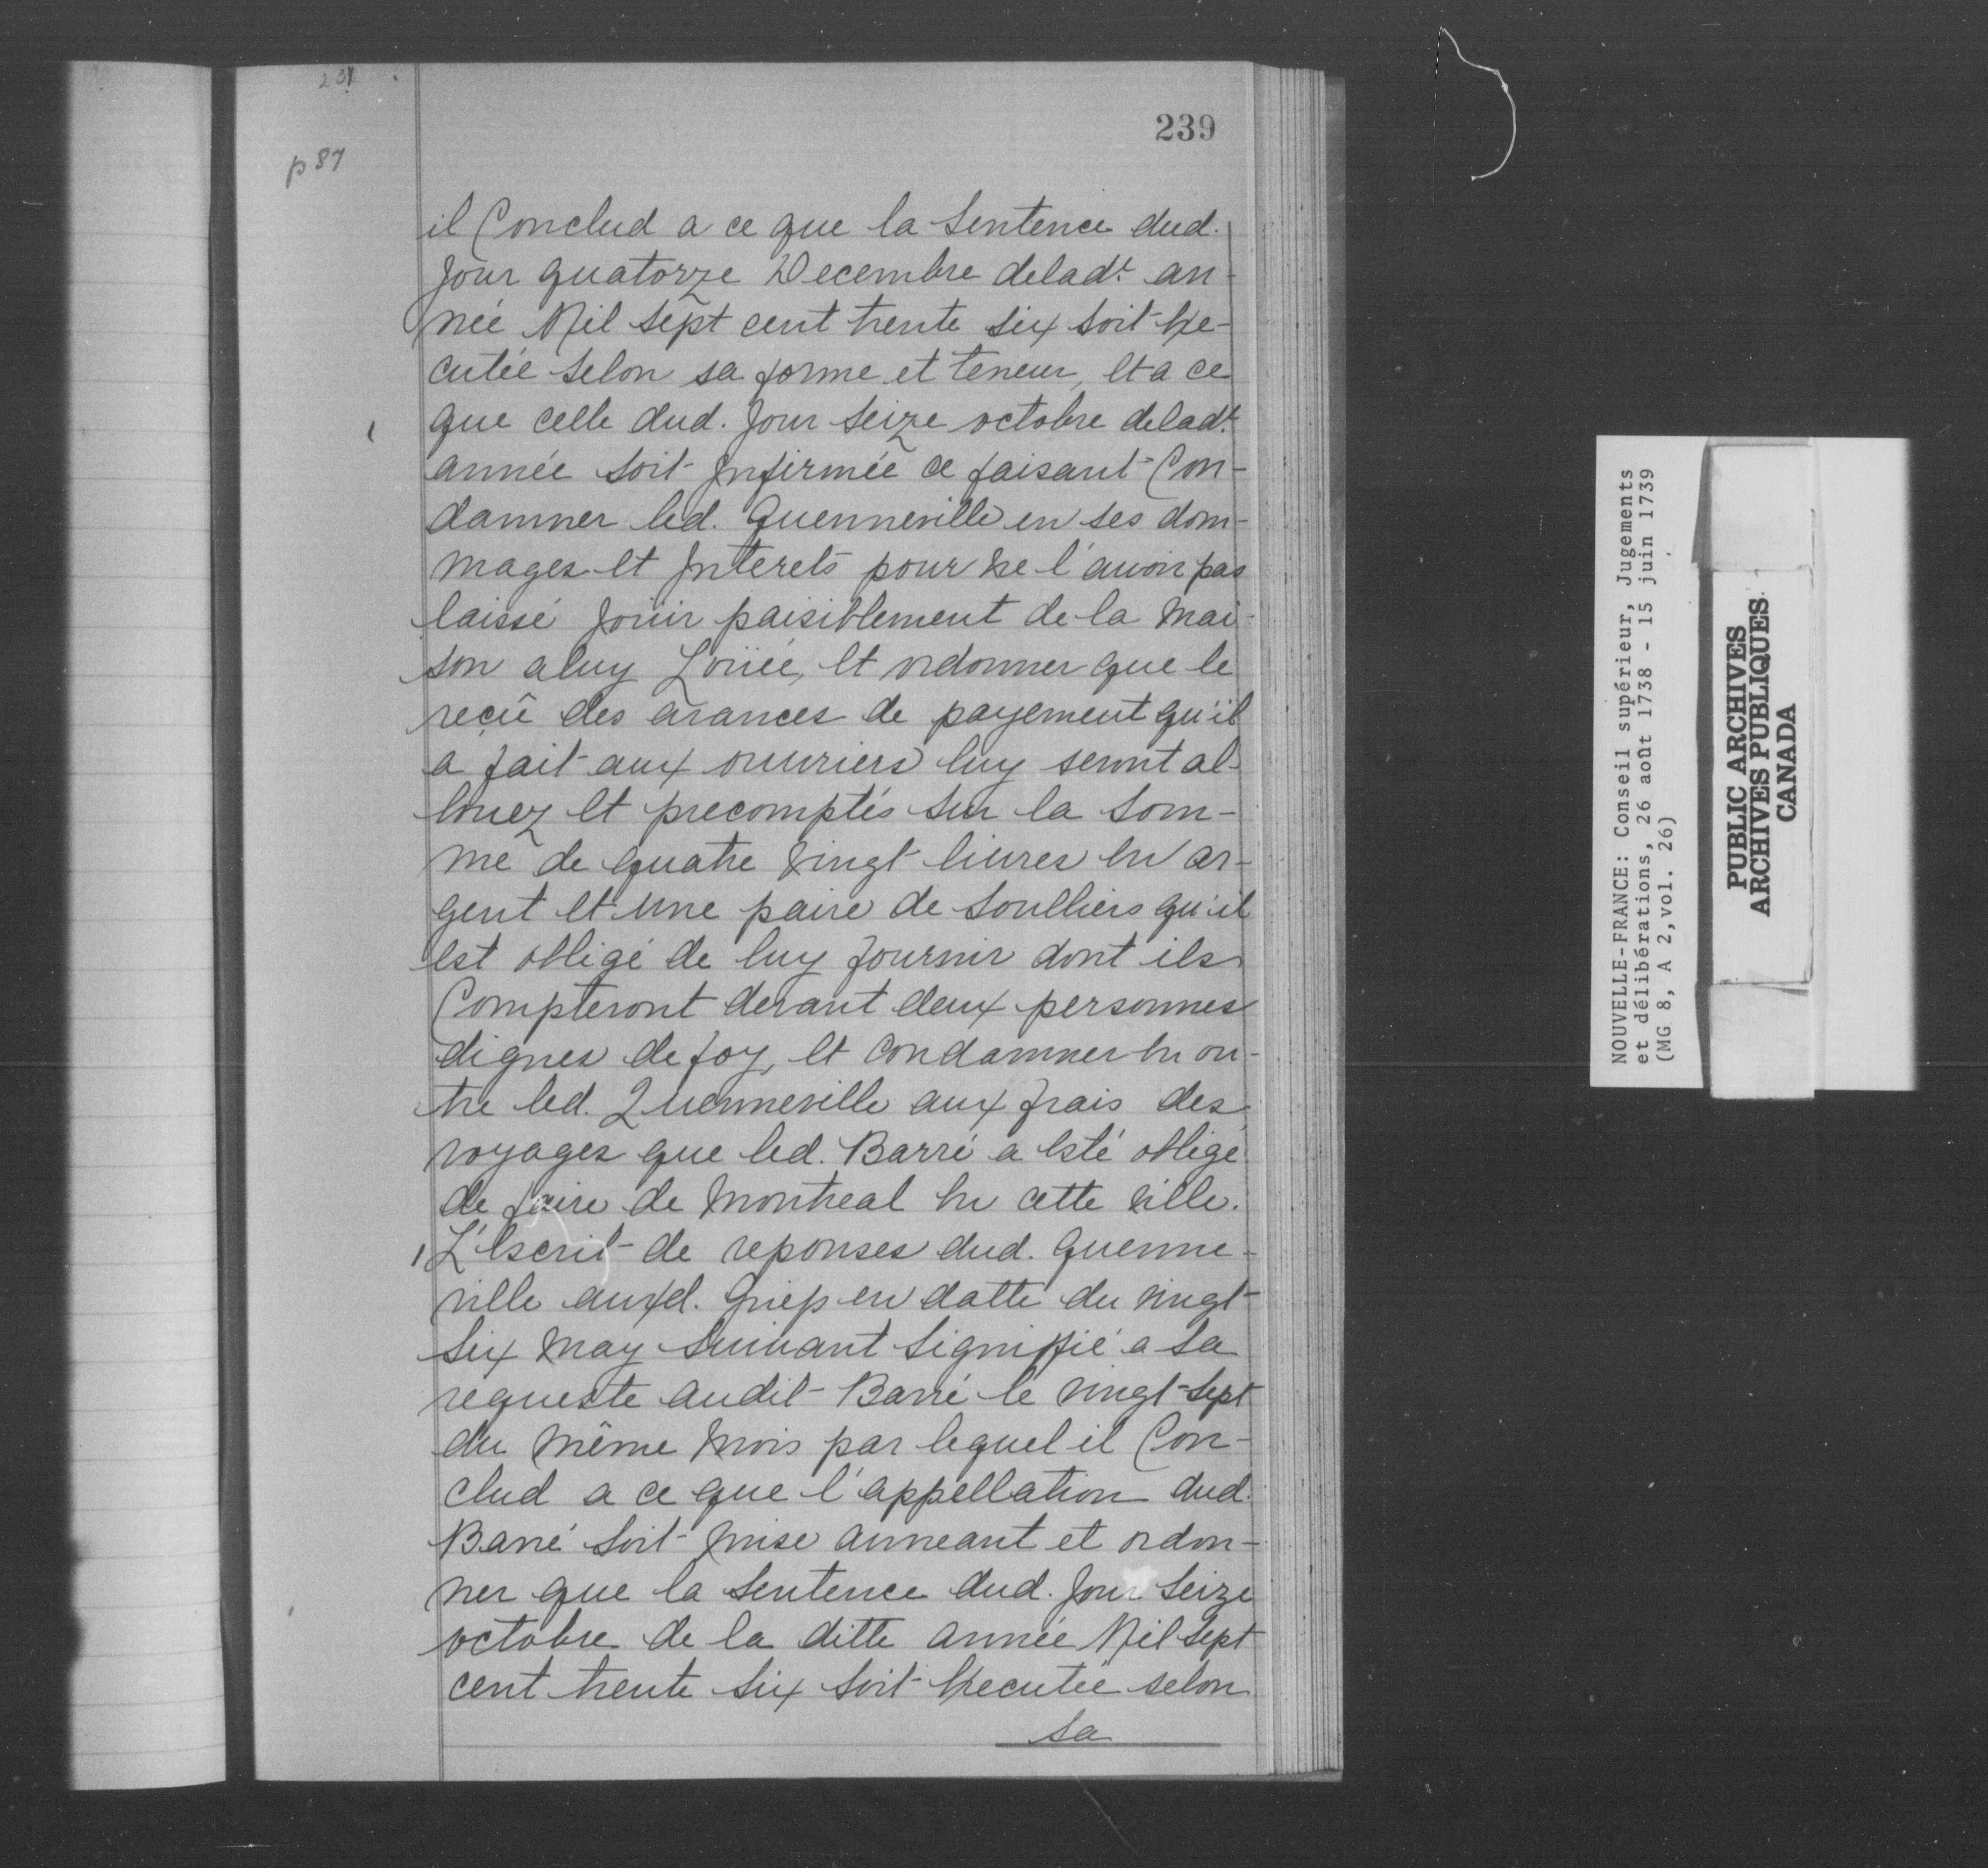 231
239
p 87
il Conclud a ce que la Sentence dud.
Jour quatorze Decembre deladt. an-
née Mil Sept cent trente six soit Exe-
cutée selon sa forme et teneur, Et a ce
que celle dud. Jour Seize octobre deladt.
année soit Infirmée ce faisant Con-
damner led. Quenneville en ses dom-
mages Et Interets pour ne l'auoir pas
laissé Joüir paisiblement de la Mai-
son aluy Loüée, Et ordonner que le
reçû des avances de payement qu'il
a fait aux ouuriers luy seront al-
louez Et precomptés Sur la Som-
me de quatre Vingt liures En ar-
gent Et Une paire de Soulliers qu'il
Est obligé de luy fournir dont ils
Compteront devant deux personnes
dignes de foy, Et Condamner En ou-
tre led. Quenneville aux frais des
voyages que led. Barré a Esté obligé
de faire de Montreal En cette Ville.
L'Escrit de reponses dud. Quenne-
ville auxd. Griefs en datte du vingt
Six May Suiuant Signiffié a Sa
requeste audit Barré le vingt-sept
du même Mois par lequel il Con-
clud a ce que l'appellation dud.
Barré soit Mise anneant et ordon-
ner que la Sentence dud. Jour Seize
octobre de la ditte année Mil Sept
cent trente Six soit Executée selon
Sa
NOUVELLE-FRANCE: Conseil supérieur, Jugements
et délibérations, 26 août 1738 - 15 juin 1739
(MG 8, A 2,vol. 26)
PUBLIC ARCHIVES
ARCHIVES PUBLIQUES
CANADA